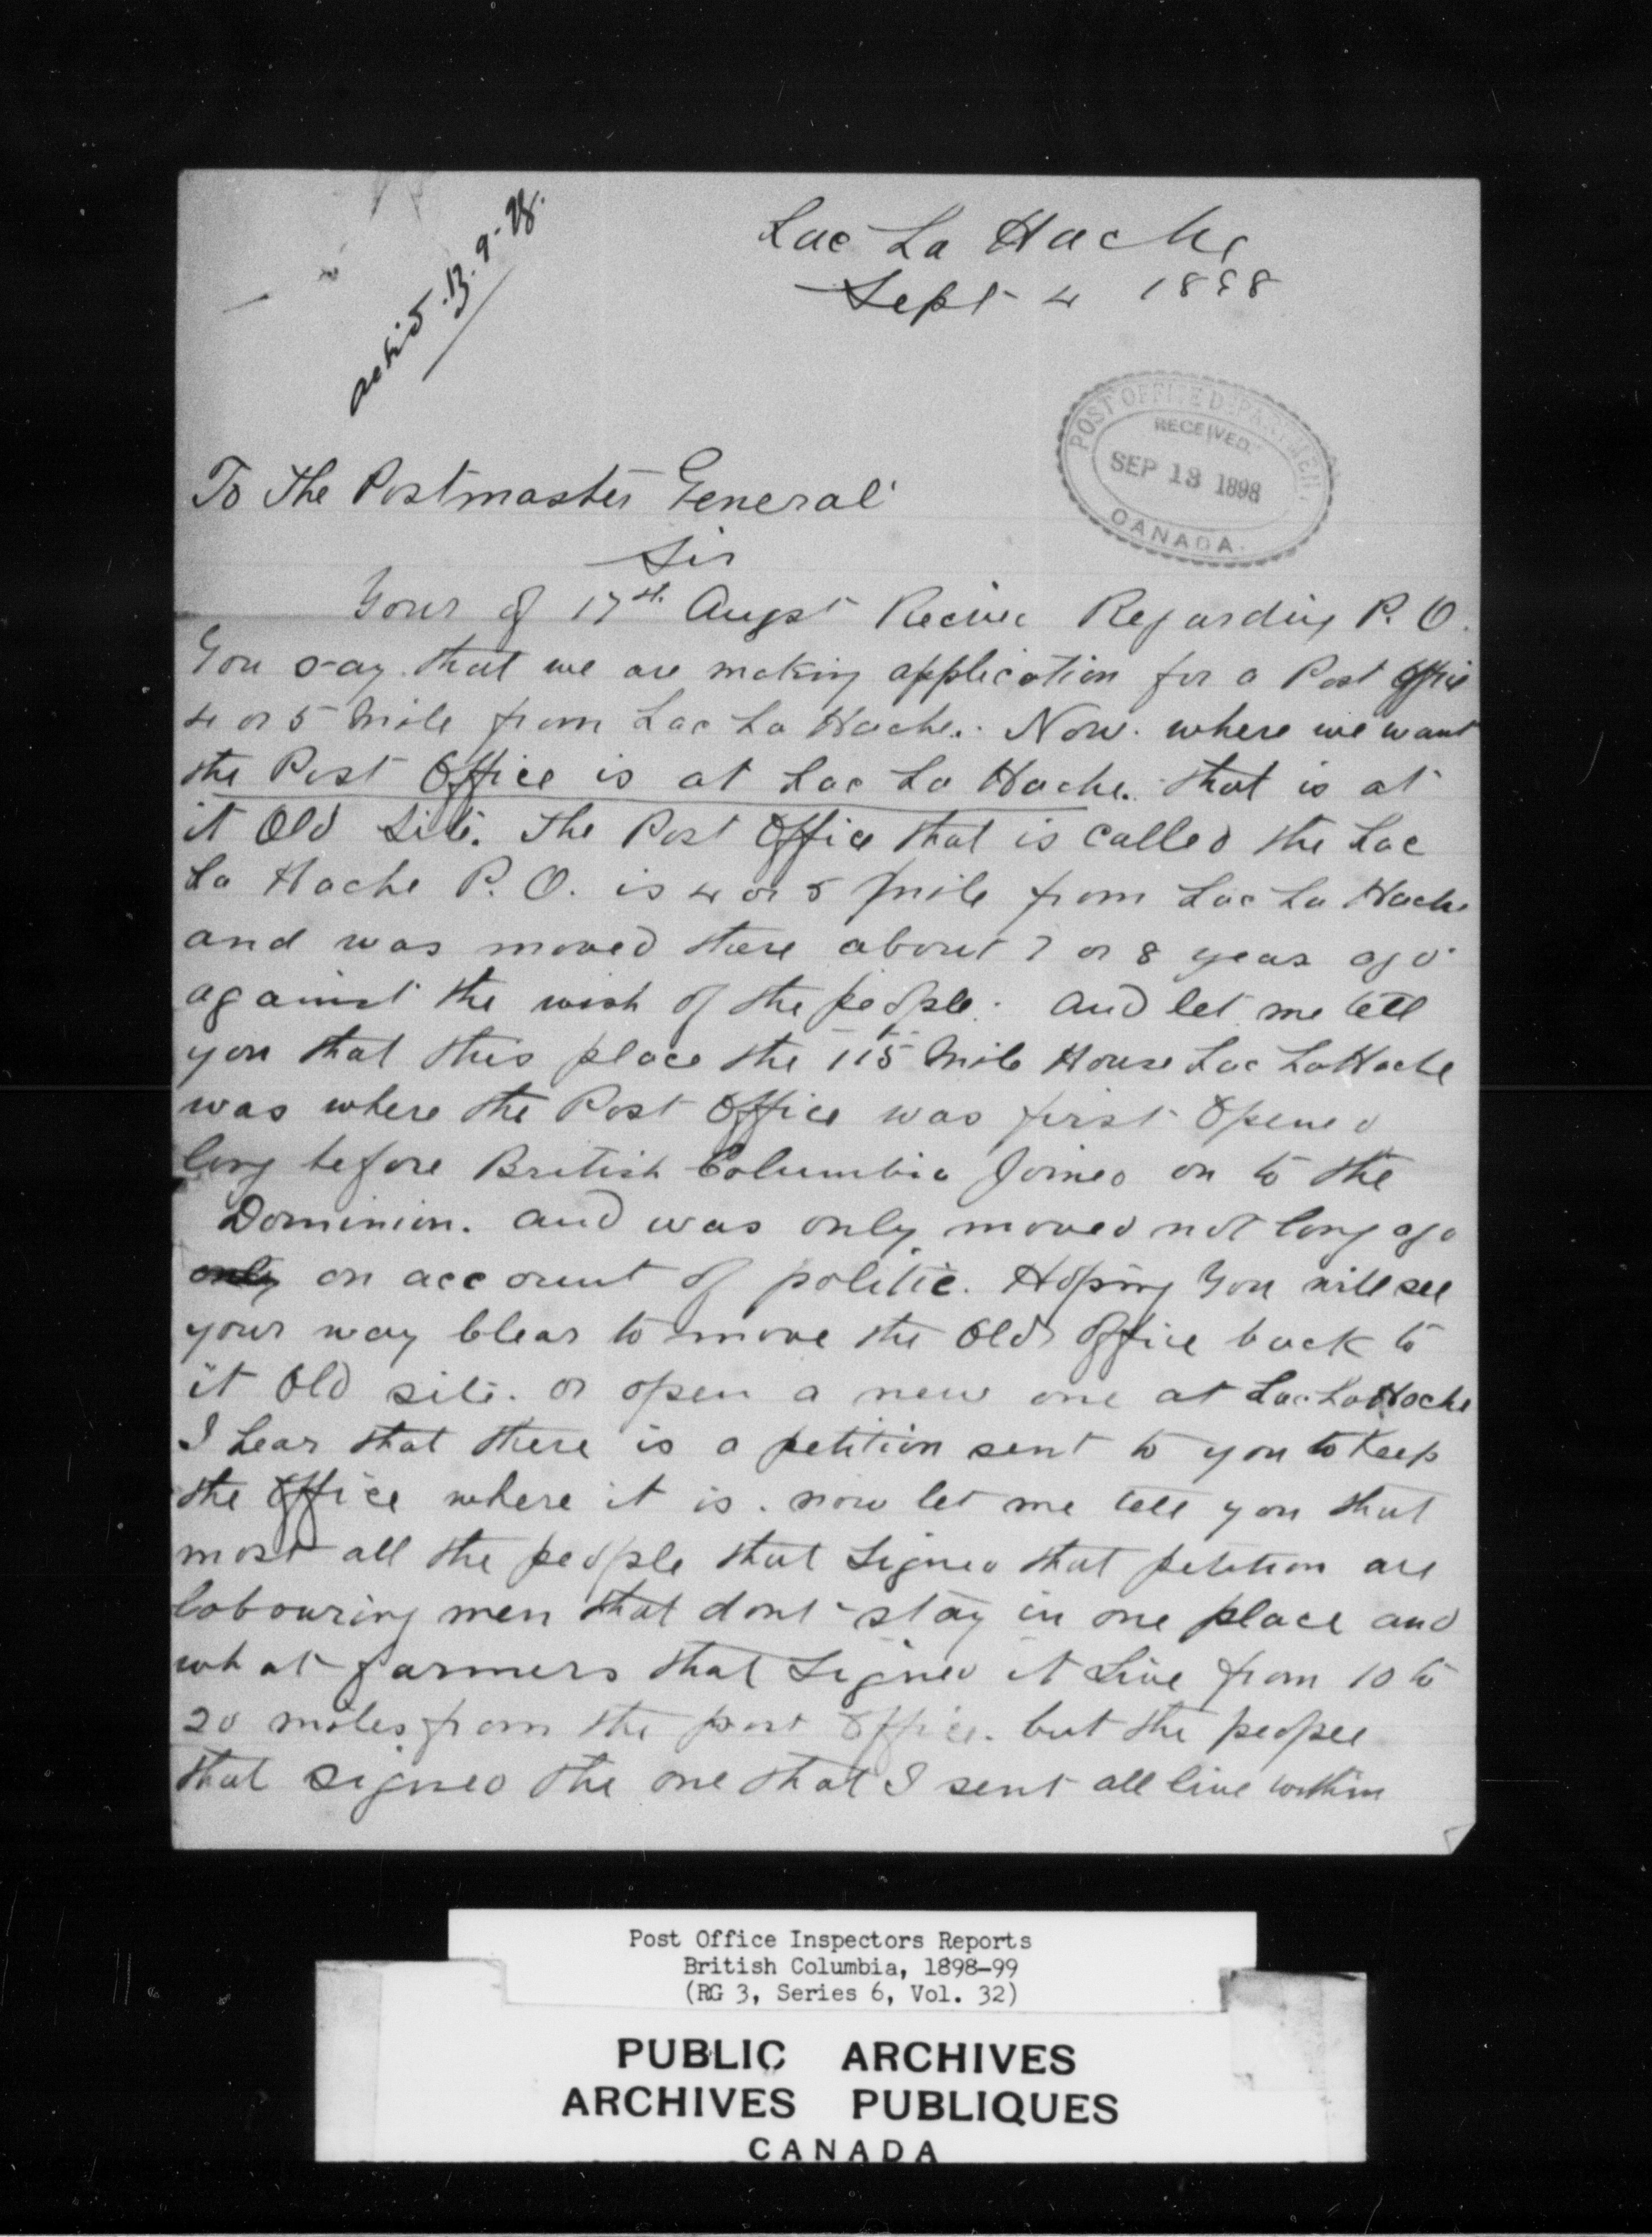 Lac La Hache
Sept 4 1898
13.9.98.
POST OFFICE DEPARTMENT
RECEIVED.
SEP 13 1898
CANADA.
To The Postmaster General
Sir
Your of 17th Augst Recive Regarding P. O.
You say that we are making application for a Post Office
4 or 5 Mile from Lac La Hache. Now. where we want
the Post Office is at Lac La Hache. that is at
it Old Site. The Post Office that is called the Lac
La Hache P. O. is 4 or 5 Mile from Lac La Hache
and was moved there about 7 or 8 years ago
against the wish of the people. and let me tell
you that this place the 115 Mile House Lac La Hache
was where the Post Office was first Opened
long before British Columbia Joined on to the
Dominion. and was only moved not long ago
only on account of politic. Hoping You will see
your way Clear to move the Old Office back to
it Old site. or open a new one at Lac La Hache
I hear that there is a petition sent to you to Keep
the Office where it is. now let me tell you that
most all the people that Signed that petition are
labouring men that dont stay in one place and
what farmers that Signed it Live from 10 to
20 miles from the post Office. but the people
that signed the one that I sent all live within
Post Office Inspectors Reports
British Columbia, 1898-99
(RG 3, Series 6, Vol. 32)
PUBLIC ARCHIVES
ARCHIVES PUBLIQUES
CANADA